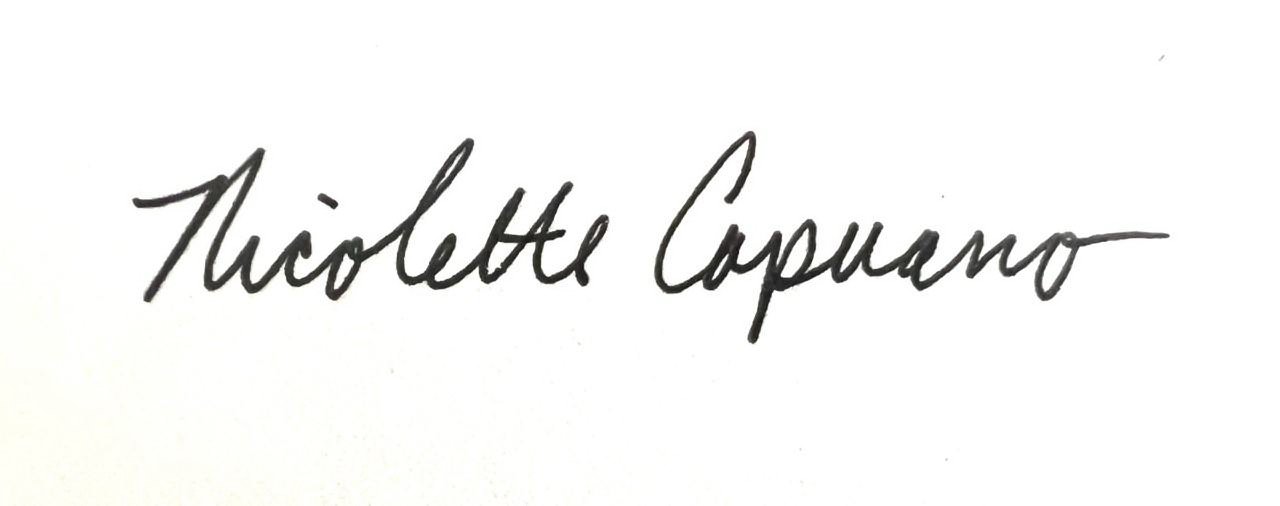 Nicolette Capuano